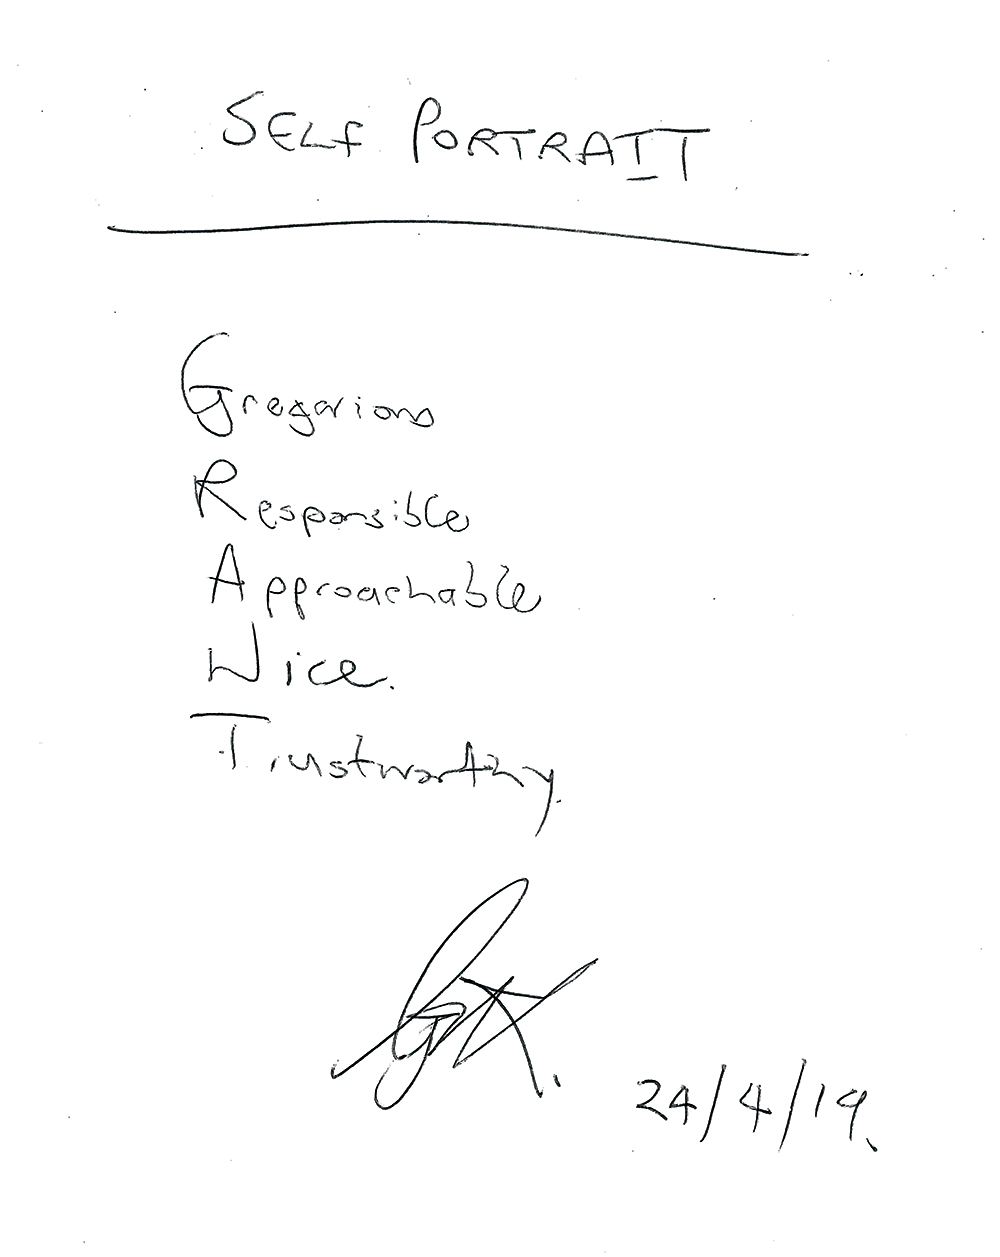 SELF PORTRAIT
Gregarious
Responsible
Approachable
Nice.
Trustworthy.
24/4/19.